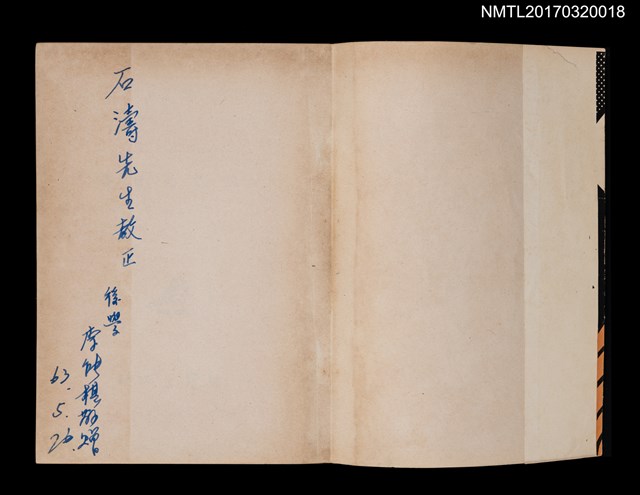 NMTL20170320018
石濤先生教正
後學
李能棋敬贈
63.5.26.